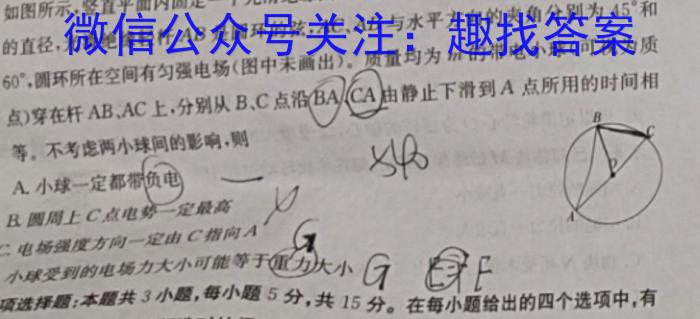 如图所示,竖直平面内固定一个光滑绝缘
微信公众号关注：趣找答案
的直径,与水平方向的夹角分别为45°和
60°,圆环所在空间有匀强电场(图中未画出)。质量均为m的带电小球(可视为质
点)穿在杆AB、AC上,分别从B、C点沿BA、CA由静止下滑到A点所用的时间相
等。不考虑两小球间的影响,则
A. 小球一定都带负电
B. 圆周上C点电势一定最高
C. 电场强度方向一定由C指向A
小球受到的电场力大小可能等于重力大小
G
G
F
B
C
O
A
项选择题:本题共3小题,每小题5分,共15分。在每小题给出的四个选项中,有